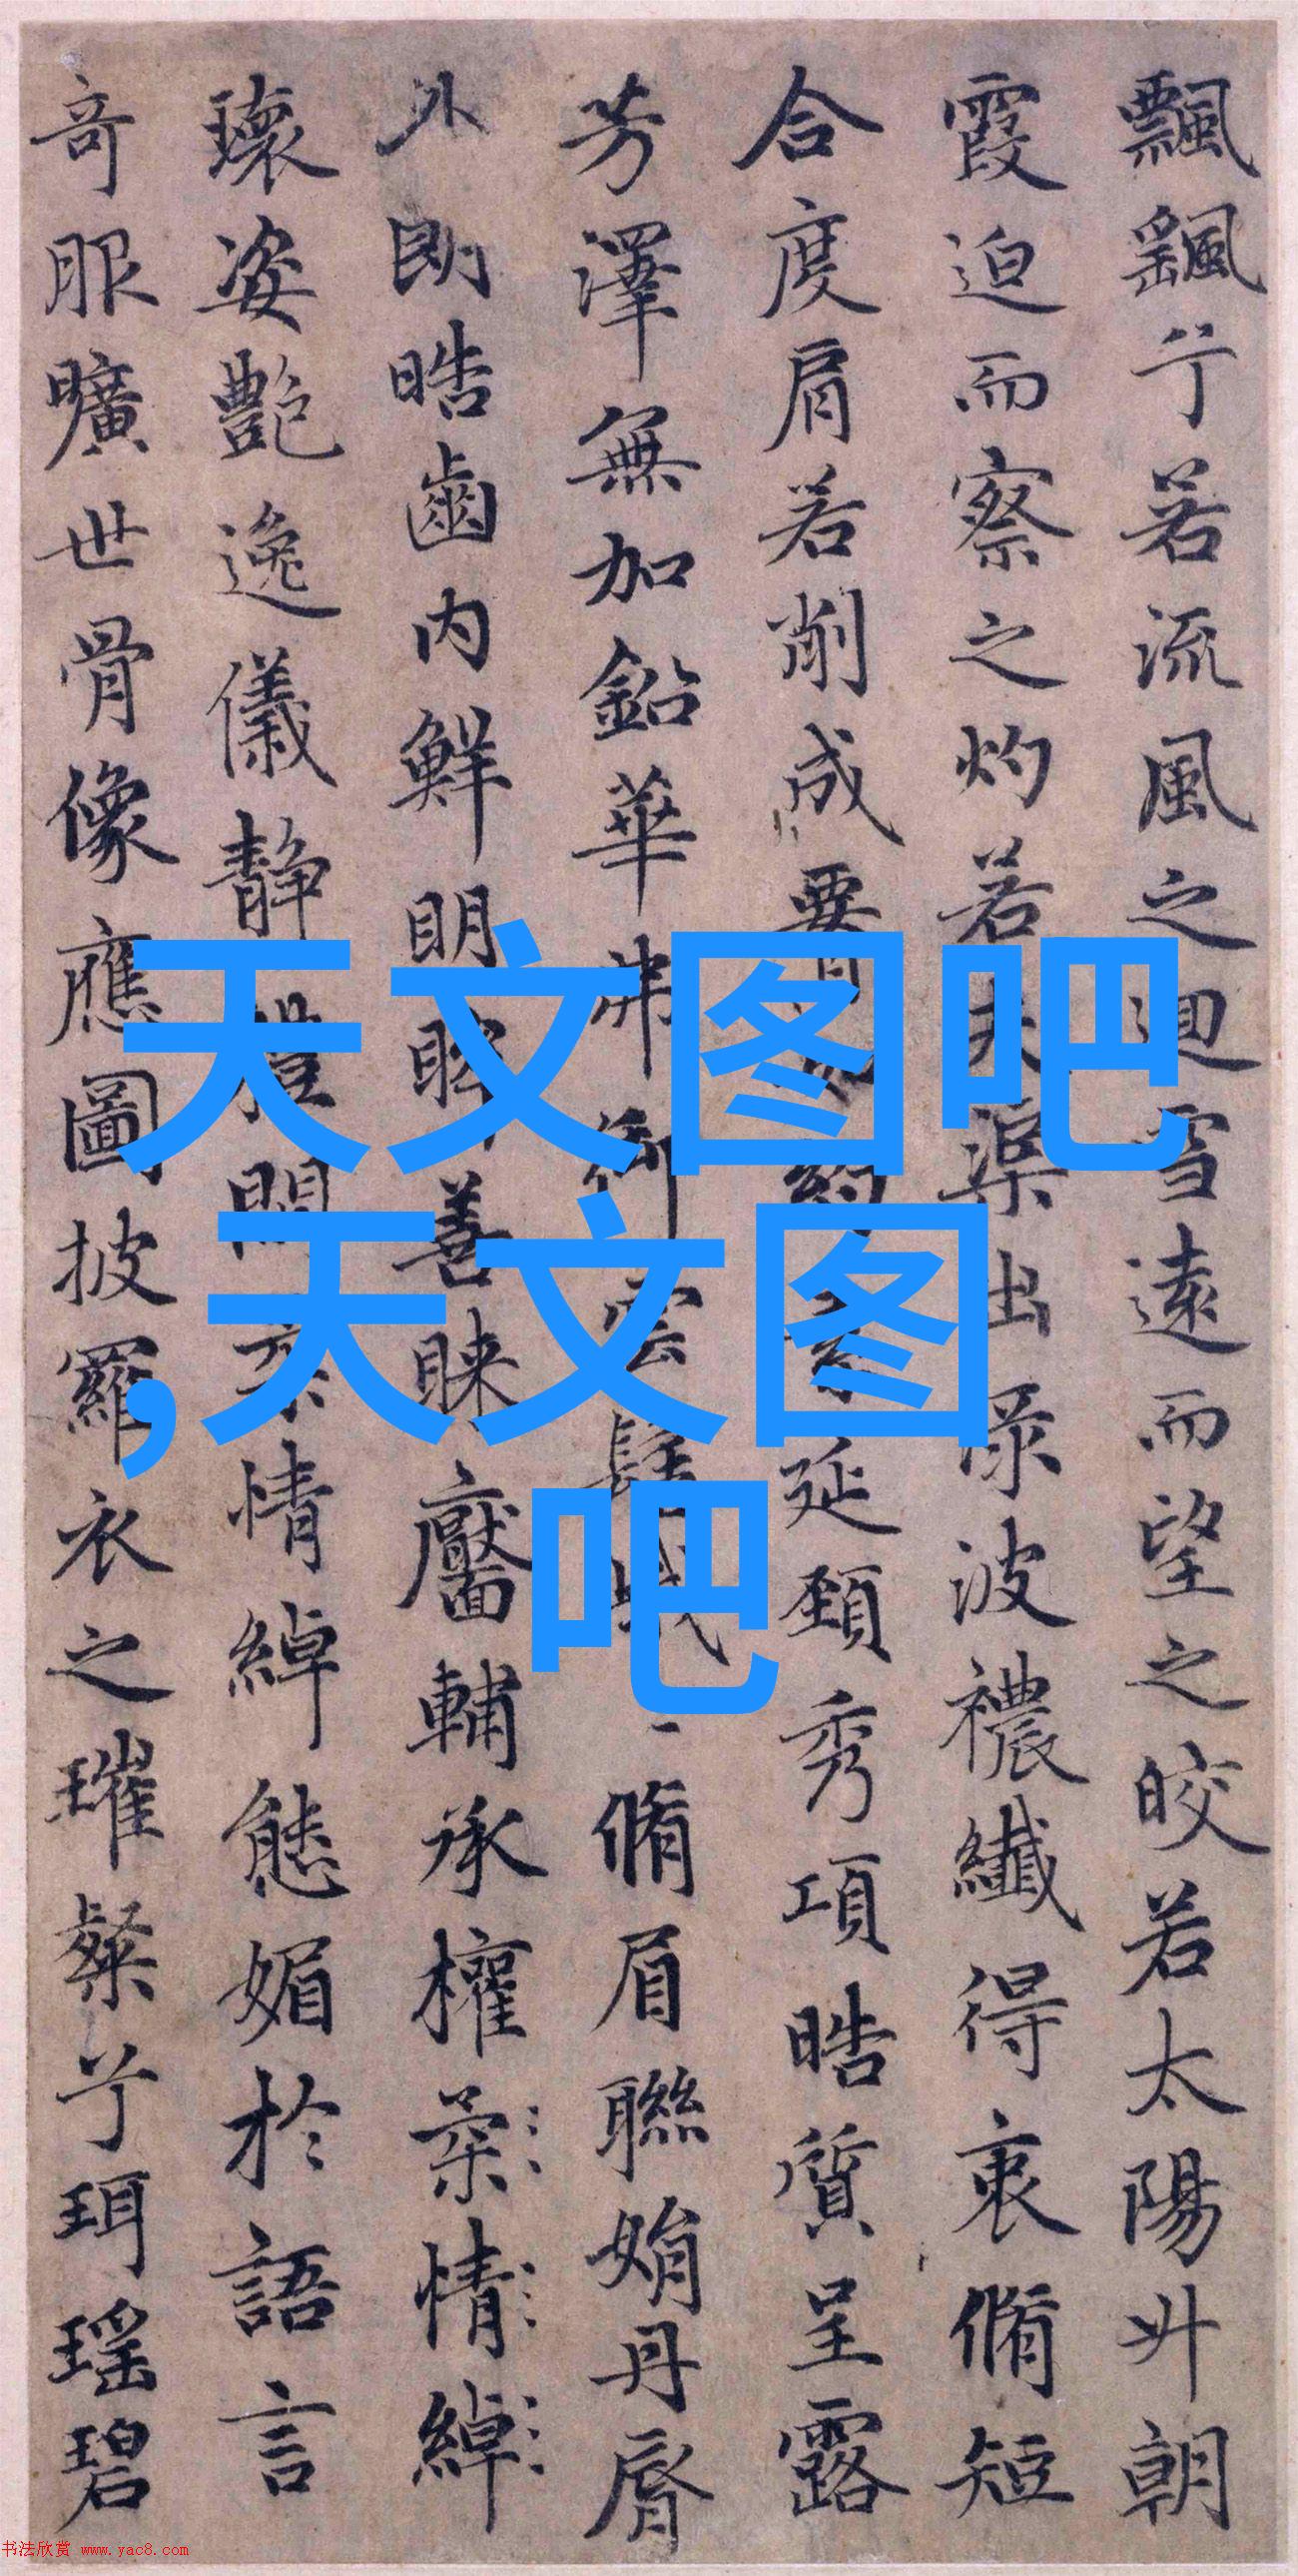 飄飖兮若流風之迴雪遠而望之皎若太陽升朝
霞迫而察之灼若夫渠出渌波穠纖得衷脩短
合度肩若削成要約素延頸秀項皓質呈露
芳澤無加鉛華弗御雲髻脩眉聯娟丹脣
外朗皓齒内鮮明眸善睞靨輔承權柔情綽
瓌姿艷逸儀靜體閑柔情綽態媚於語言
奇服曠世骨像應圖披羅衣之璀粲兮珥瑶碧
天文图吧
,天文图
吧
书法欣赏 www.yac8.com